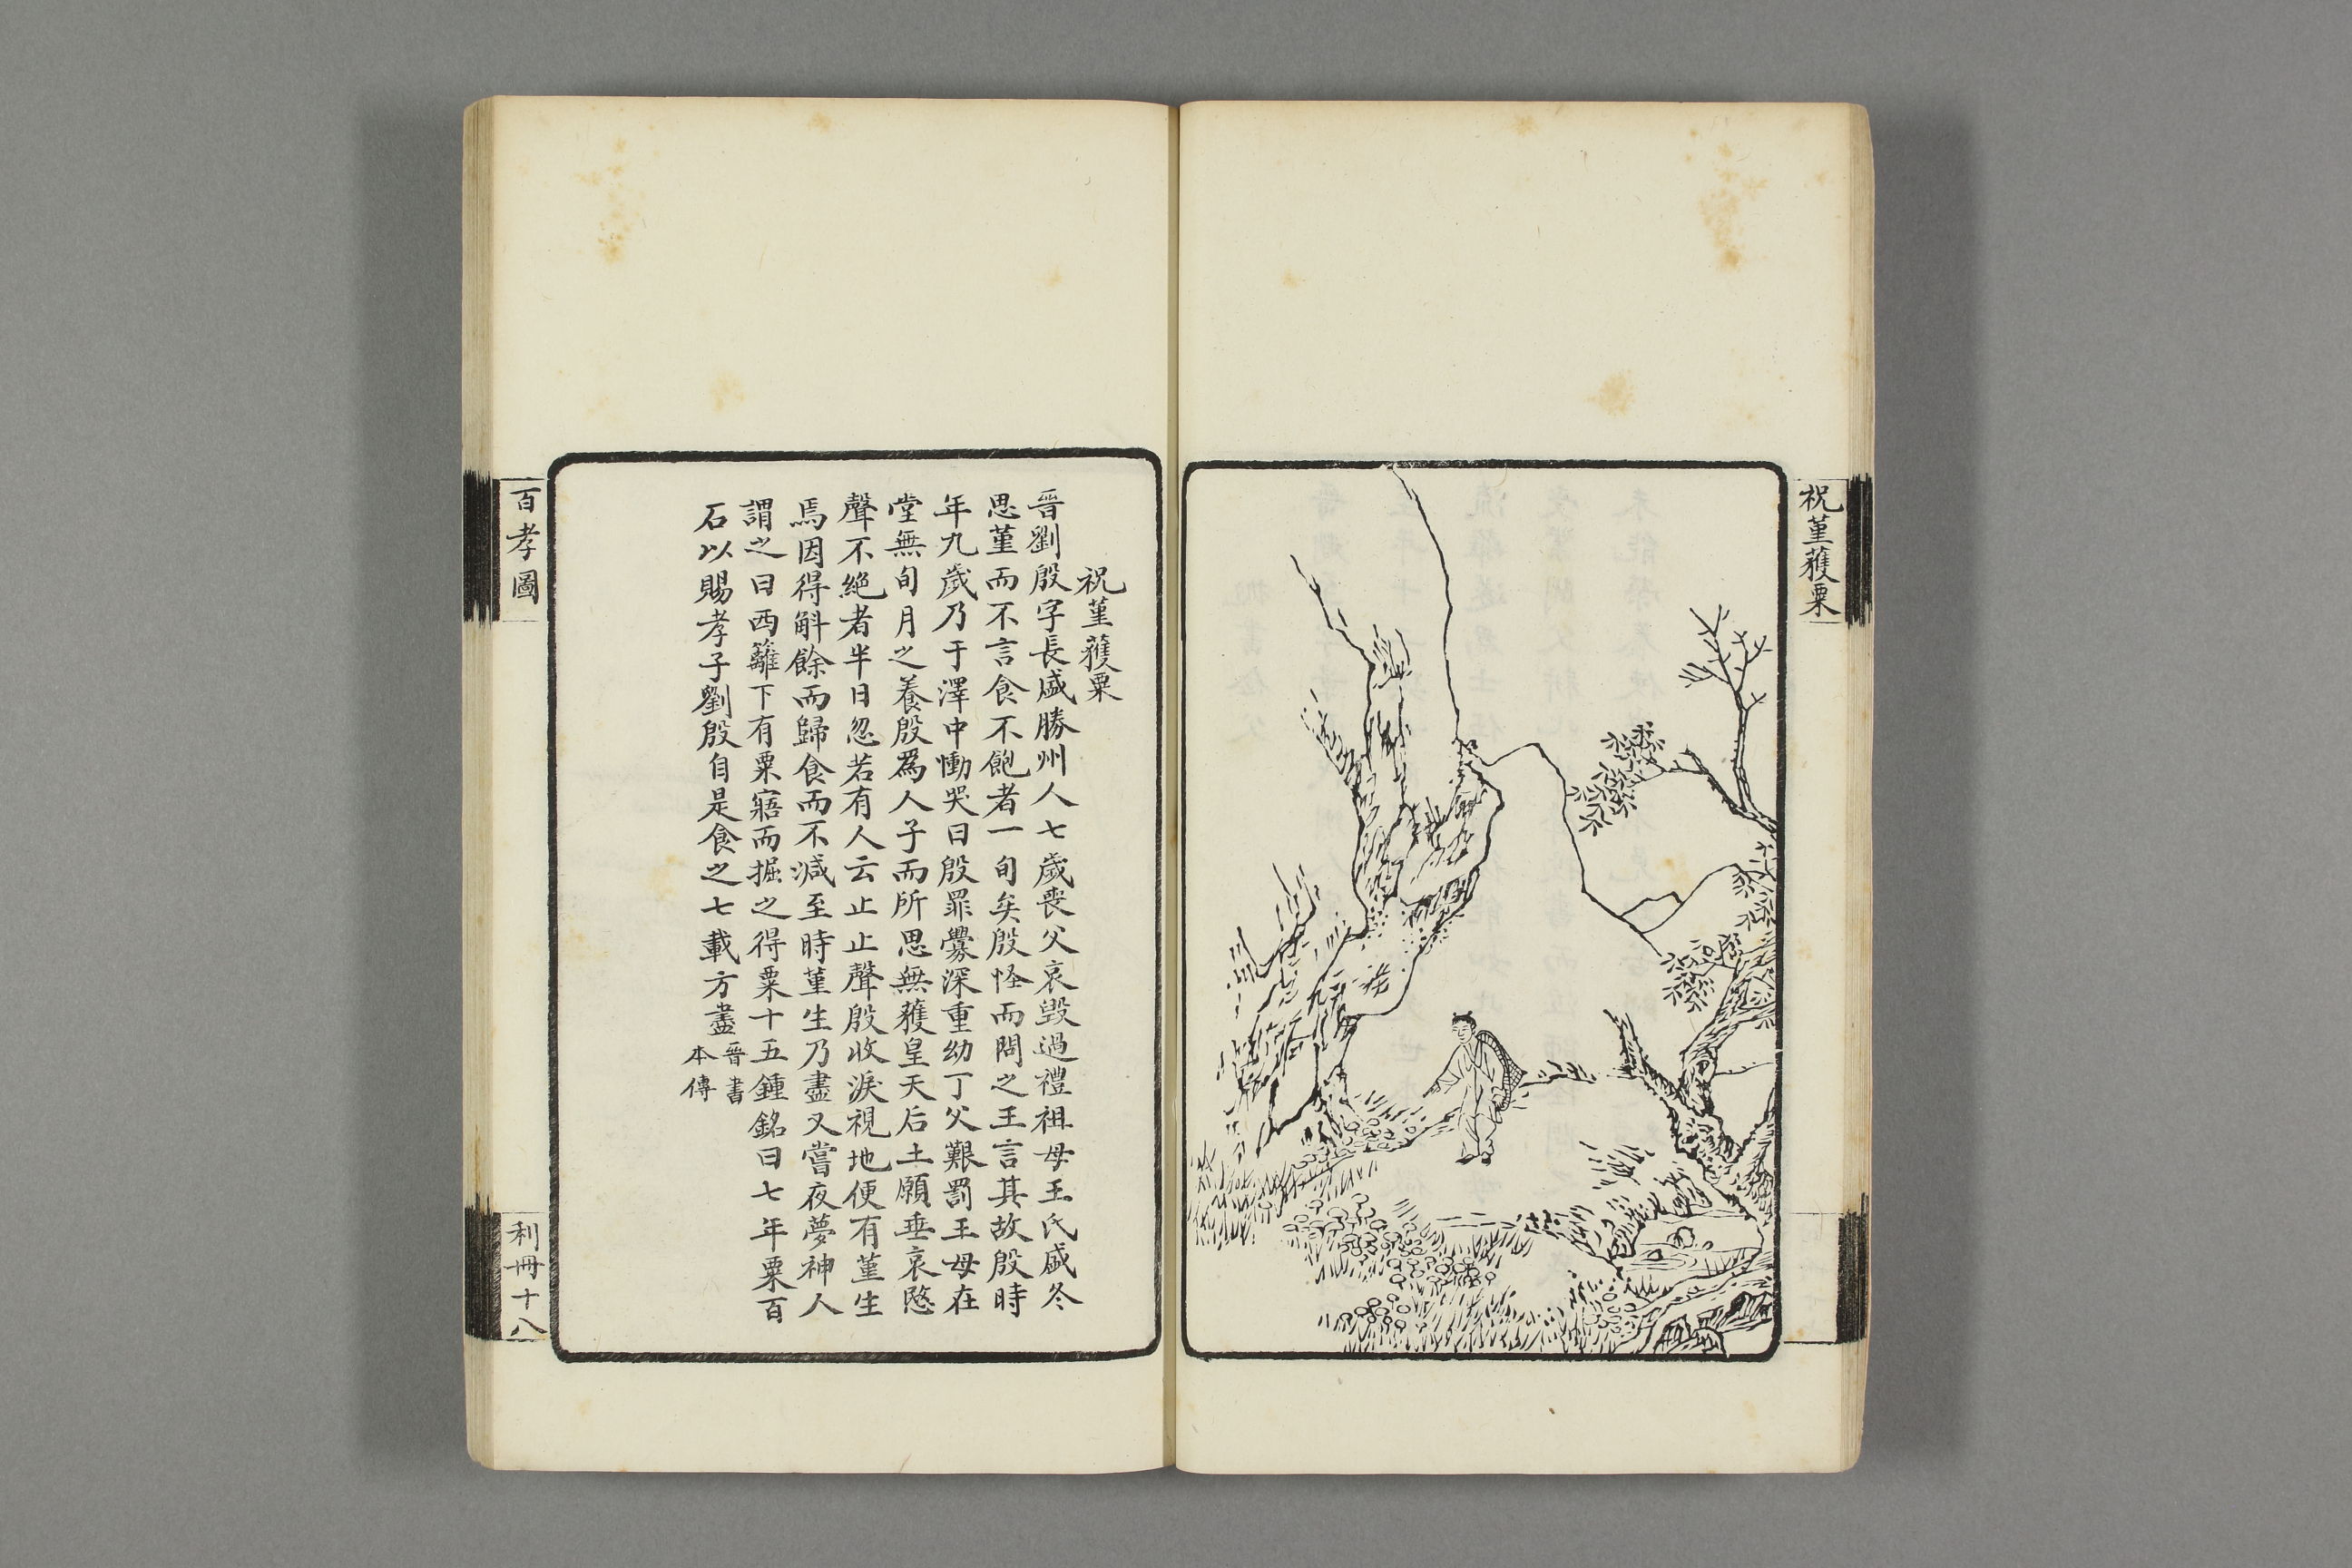 祝堇蒦粟
祝堇蒦粟
晋劉殷字長盛勝州人七歲喪父哀毀過禮祖母王氏盛冬
思堇而不言食不飽者一旬矣殷怪而問之王言其故殷時
年九歲乃于澤中慟哭曰殷罪釁深重幼丁父艱罰王母在
堂無旬月之養殷爲人子而所思無蒦皇天后土願垂哀愍
聲不絕者半日忽若有人云止止聲殷收淚視地便有堇生
焉因得斛餘而歸食而不減至時堇生乃盡又嘗夜夢神人
謂之曰西籬下有粟寤而掘之得粟十五鍾銘曰七年粟百
石以賜孝子劉殷自是食之七載方盡
晋書
本傳
百孝圖
利冊十八